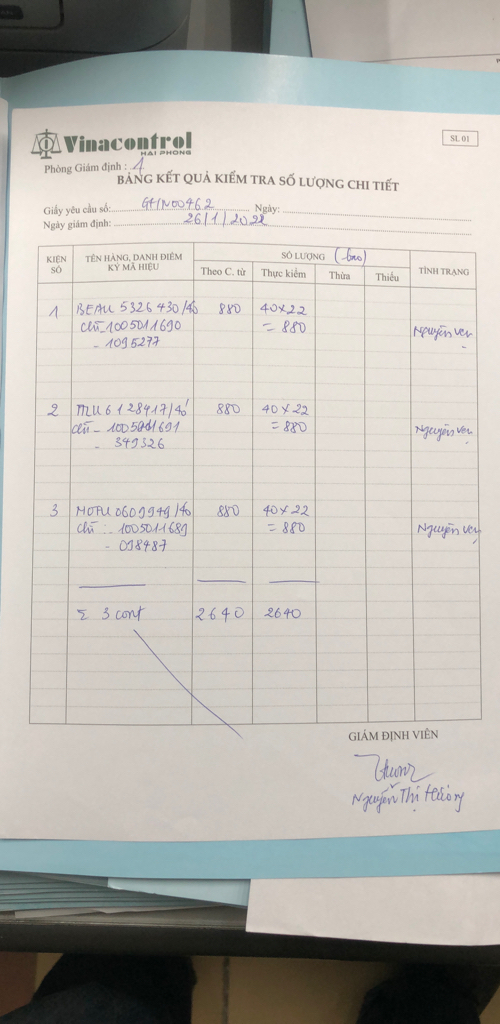 SL 01
Vinacontrol
HAI PHONG
Phòng Giám định : 1
BẢNG KẾT QUẢ KIỂM TRA SỐ LƯỢNG CHI TIẾT
Giấy yêu cầu số: G11N00462 Ngày:
Ngày giám định: 26/1/2022
KIỆN SỐ TÊN HÀNG, DANH ĐIỂM KÝ MÃ HIỆU SỐ LƯỢNG (bao) TÌNH TRẠNG
Theo C. từ Thực kiểm Thừa Thiếu
1 BEAU 5326430/40 880 40x22 Nguyên vẹn
chì - 1005011690 = 880
- 1095277
2 6128417/40' 880 40x22 Nguyên vẹn
chì - 1005011691 = 880
- 349326
3 MOFU 0609949/40 880 40x22 Nguyên vẹn
chì : - 1005011689 = 880
- 098487
Σ 3 cont 2640 2640
GIÁM ĐỊNH VIÊN
Nguyễn Thị Hương